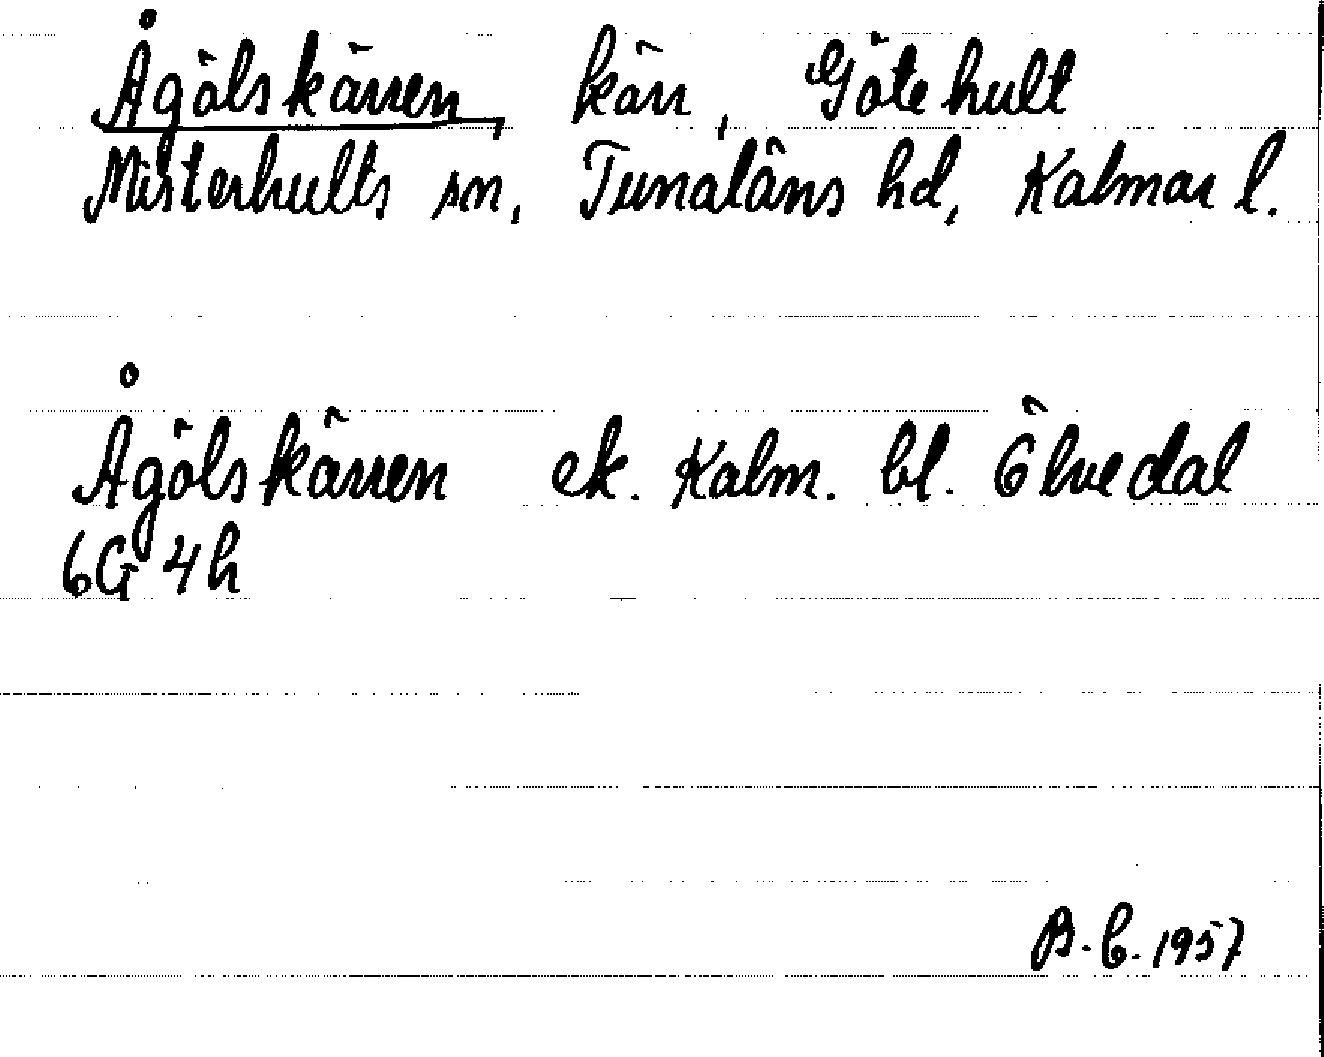 Ågölskärren, kärr, Götehult
Misterhults sn, Tunaläns hd, Kalmar l.
Ågölskärren ek. Kalm. bl. Ölvedal
6G 4h
B.C. 1957